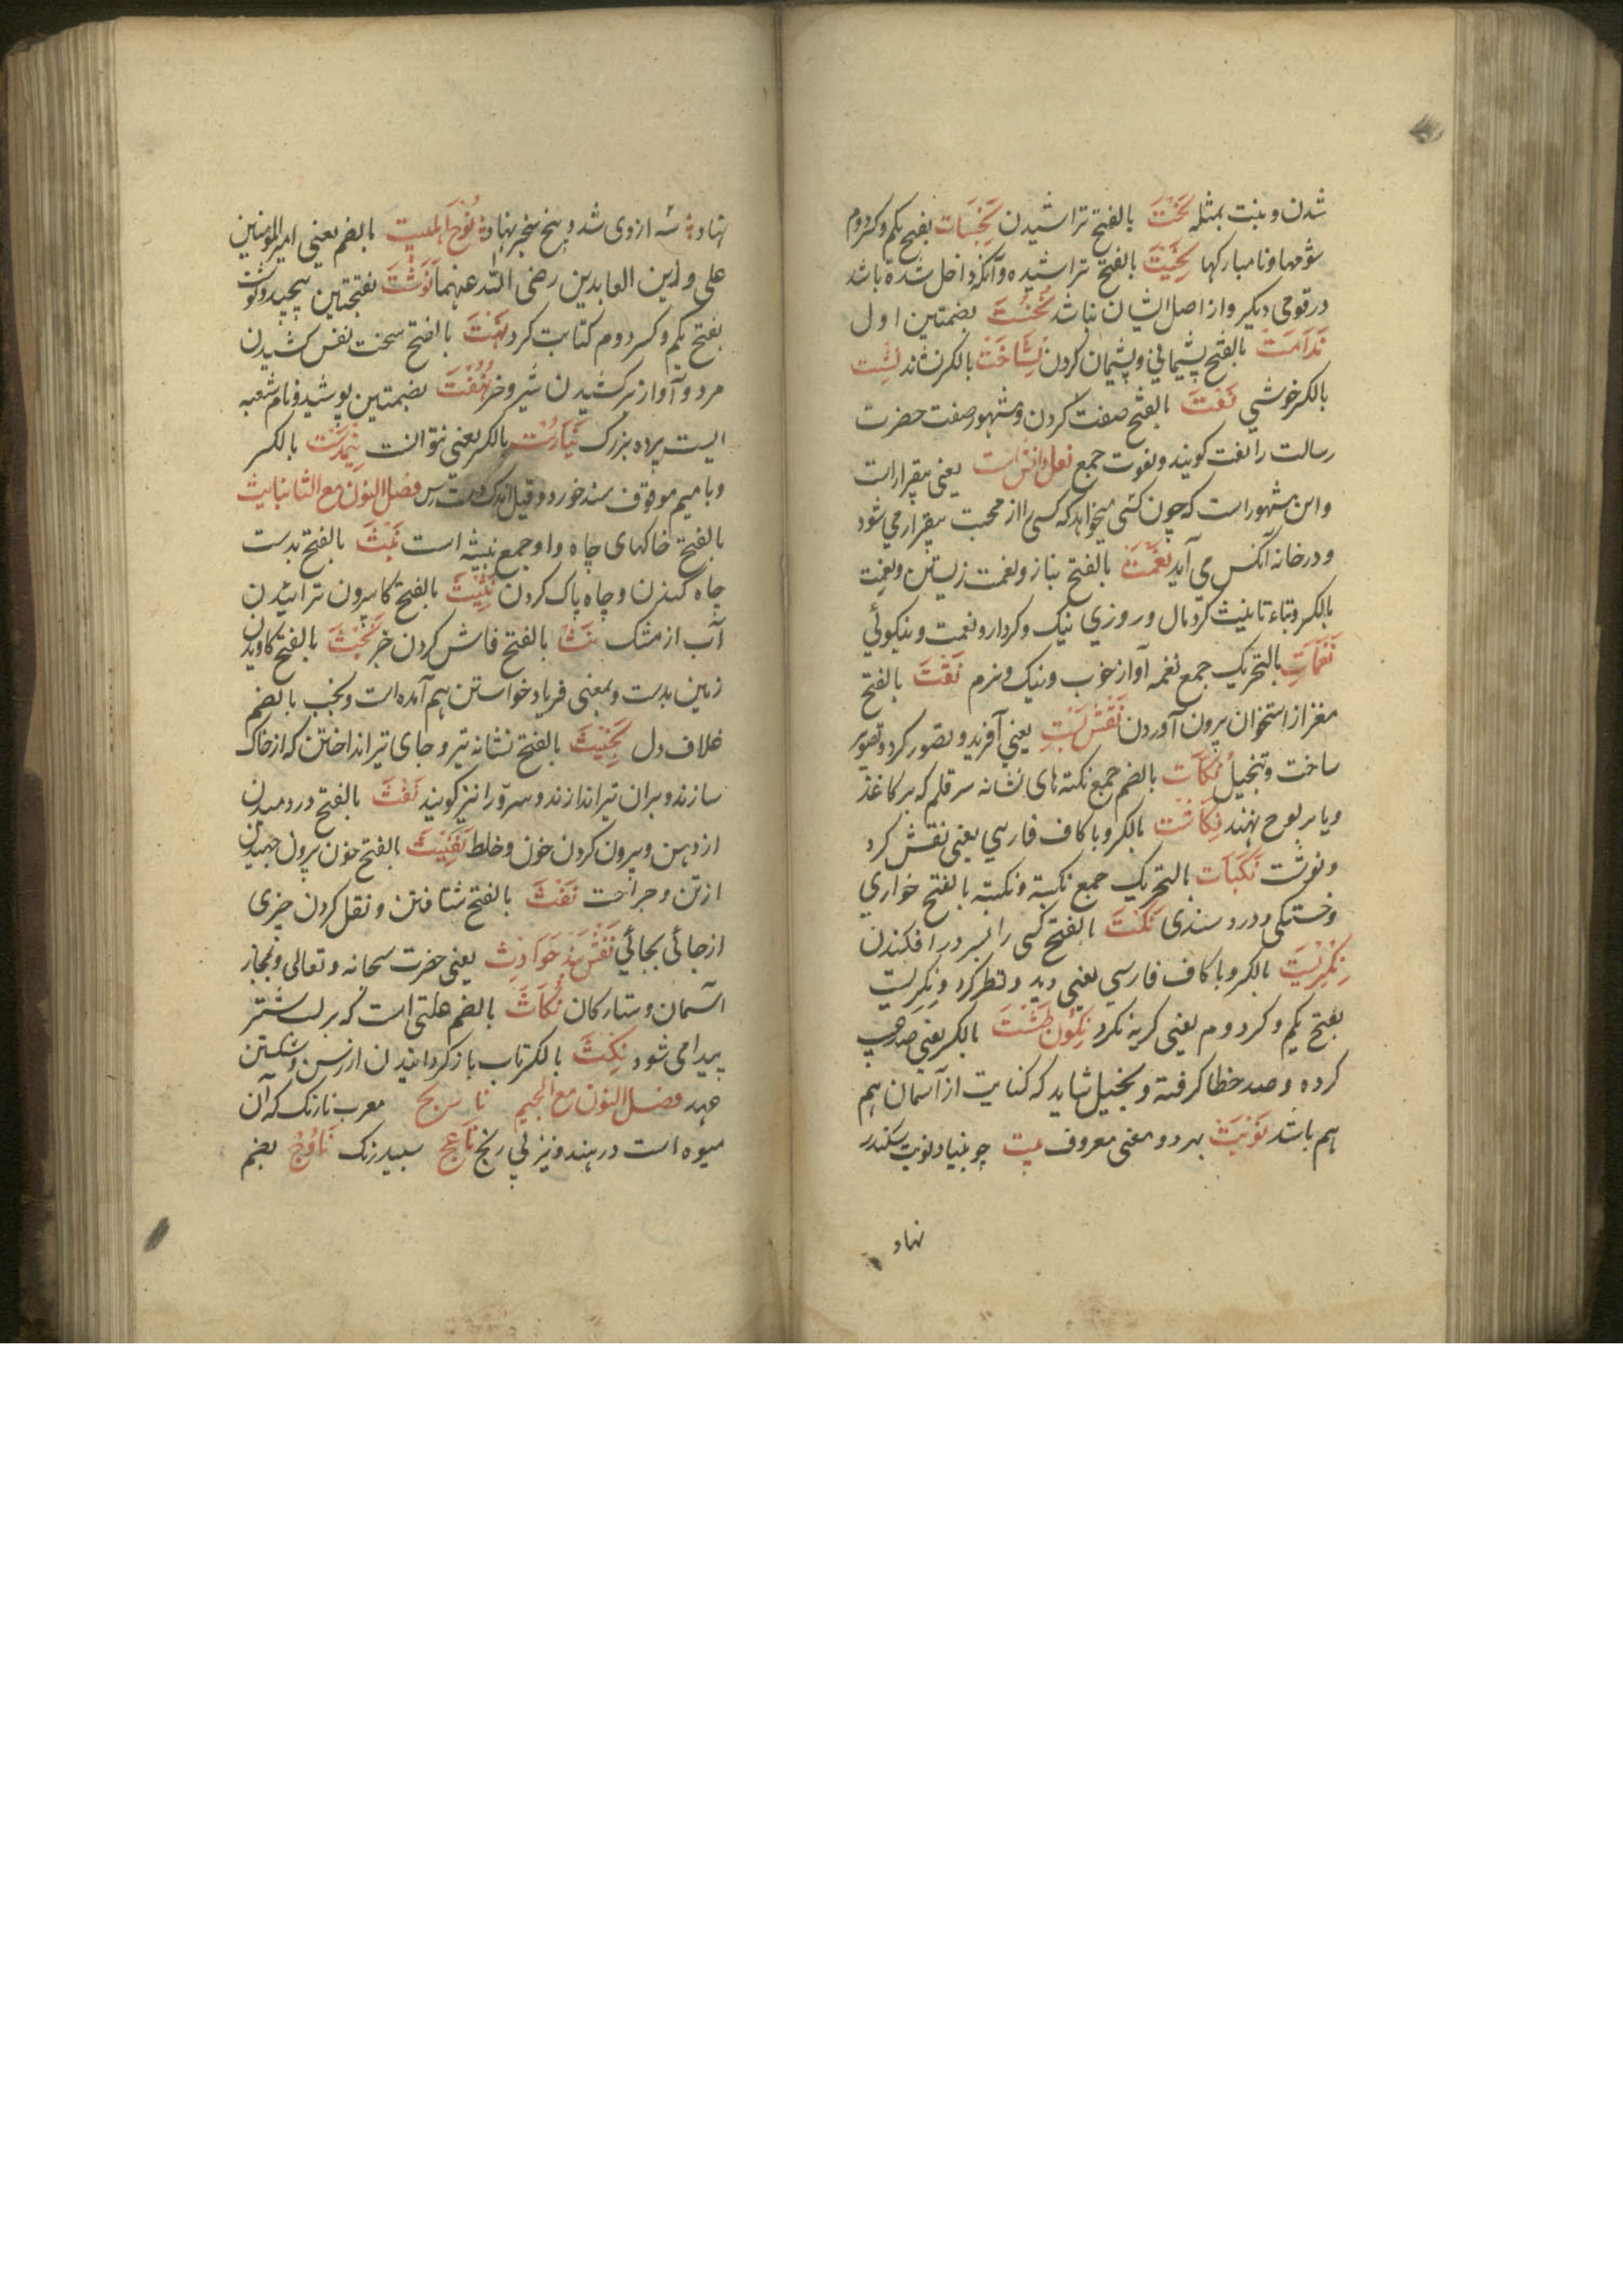 شدن و بنت بمثله نَحْتَ بالفتح تراشیدن نَحِسَات بفتح یکم و کسر دوم
شومها و نامبارکها نَحِیْتَ بالفتح تراشیده و آنکه داخل شده باشد
در قومی دیگر و از اصل ایشان نباشد نُخُسْتَ بضمتین اول
نَدَامَتْ بالفتح پشیمانی و پشیمان کردن نِشَاخَتْ بالکسر نشاند نِشَست
بالکسر خوشی نَعْتَ بالفتح صفت کردن و مشهور صفت حضرت
رسالت را نعت گویند و نعوت جمع نعل در آتش است یعنی بیقرار است
و این مشهور است که چون کسی میخواهد که کسی را از محبت بیقرار می شود
و در خانه آنکس می آید نَعْمَتْ بالفتح بناز و نعمت زیستن و نعمت
بالکسر و بتاء تانیث کرد مال و روزی نیک و کردار و نعمت و نیکوئی
نَغَمَاتِ بالتحریک جمع نغمه آواز خوب و نیک و نرم نَقْتَ بالفتح
مغز از استخوان بیرون آوردن نَقْشْ بَسْتِ یعنی آفرید و تصور کرد و تصویر
ساخت و تنجیل نُکَات بالضم جمع نکته های نشانه سر قلم که بر کاغذ
و یا بر لوح نهند نِکَاشْت بالکسر و با کاف فارسی یعنی نقش کرد
و نوشت نَکَبَات بالتحریک جمع نکبة و نکبته بالفتح خواری
و خستگی و دردمندی نَکْتَ بالفتح کسی را بسر در افکندن
نِکَرِیْسْت بالکسر و با کاف فارسی یعنی دید و نظر کرد و نگریست
بفتح یکم و کسر دوم یعنی گریه نکرد نِکُون طَشْتَ بالکسر یعنی
کرده و صد خطا گرفته و بخیل شاید که کنایت از آسمان هم
هم باشد نَوْبَتْ بهر دو معنی معروف بیت چو بنیاد نوبت سکندر
نهاد
نهاد سه از وی شد و پنج سنجر نهاد نُوْحِ اهلبیت بالضم یعنی امیر المؤمنین
علی و زین العابدین رضی الله عنهما نَوَشْتَ بفتحتین پیچید و نوشت
بفتح یکم و کسر دوم کتابت کرد نَهْتَ بالفتح سخت نفس کشیدن
مرد و آواز برکشیدن شیر و خر نُهُفْتَ بضمتین پوشید و نام شعبه
ایست پرده بزرگ نَیَارُسْت بالکسر یعنی نتوانست نِیْمدَسْت بالکسر
و با میم موقوف مسند خورد و قیل اندک دسترس فصل النون مع الثا نباث
بالفتح خاکهای چاه و او جمع نبیثه است نَبْثَ بالفتح بدست
چاه کندن و چاه پاک کردن نَثِیْثَ بالفتح کابیرون ترابیدن
آب از مشک نَثْ بالفتح فاش کردن خبر نَجْثَ بالفتح کاویدن
زمین بدست و بمعنی فریاد خواستن هم آمده است و نجث بالضم
غلاف دل نَجِیْثَ بالفتح نشانه تیر و جای تیر انداختن که از خاک
سازند و بران تیر اندازند و سرو را نیز گویند نَفْثَ بالفتح در دمیدن
از دهن و بیرون کردن خون و خلط نَفِیْثَ بالفتح خون بیرون جهیدن
از تن و جراحت نَقْثَ بالفتح شتافتن و نقل کردن چیزی
از جائی بجائی نَقْشْبَنْدِ حَوَادِثْ یعنی حضرت سبحانه و تعالی و بمجاز
آسمان و ستارکان نُکَاثَ بالضم علتی است که بر لب شتر
پیدا می شود نِکْثَ بالکسر تاب باز گردانیدن از رسن و شکستن
عهد فصل النون مع الجیم نارنج معرب نارنک که آن
میوه است در هند و نیز لی رنج نَاعِج سپید رنک نَافِجُ بضم